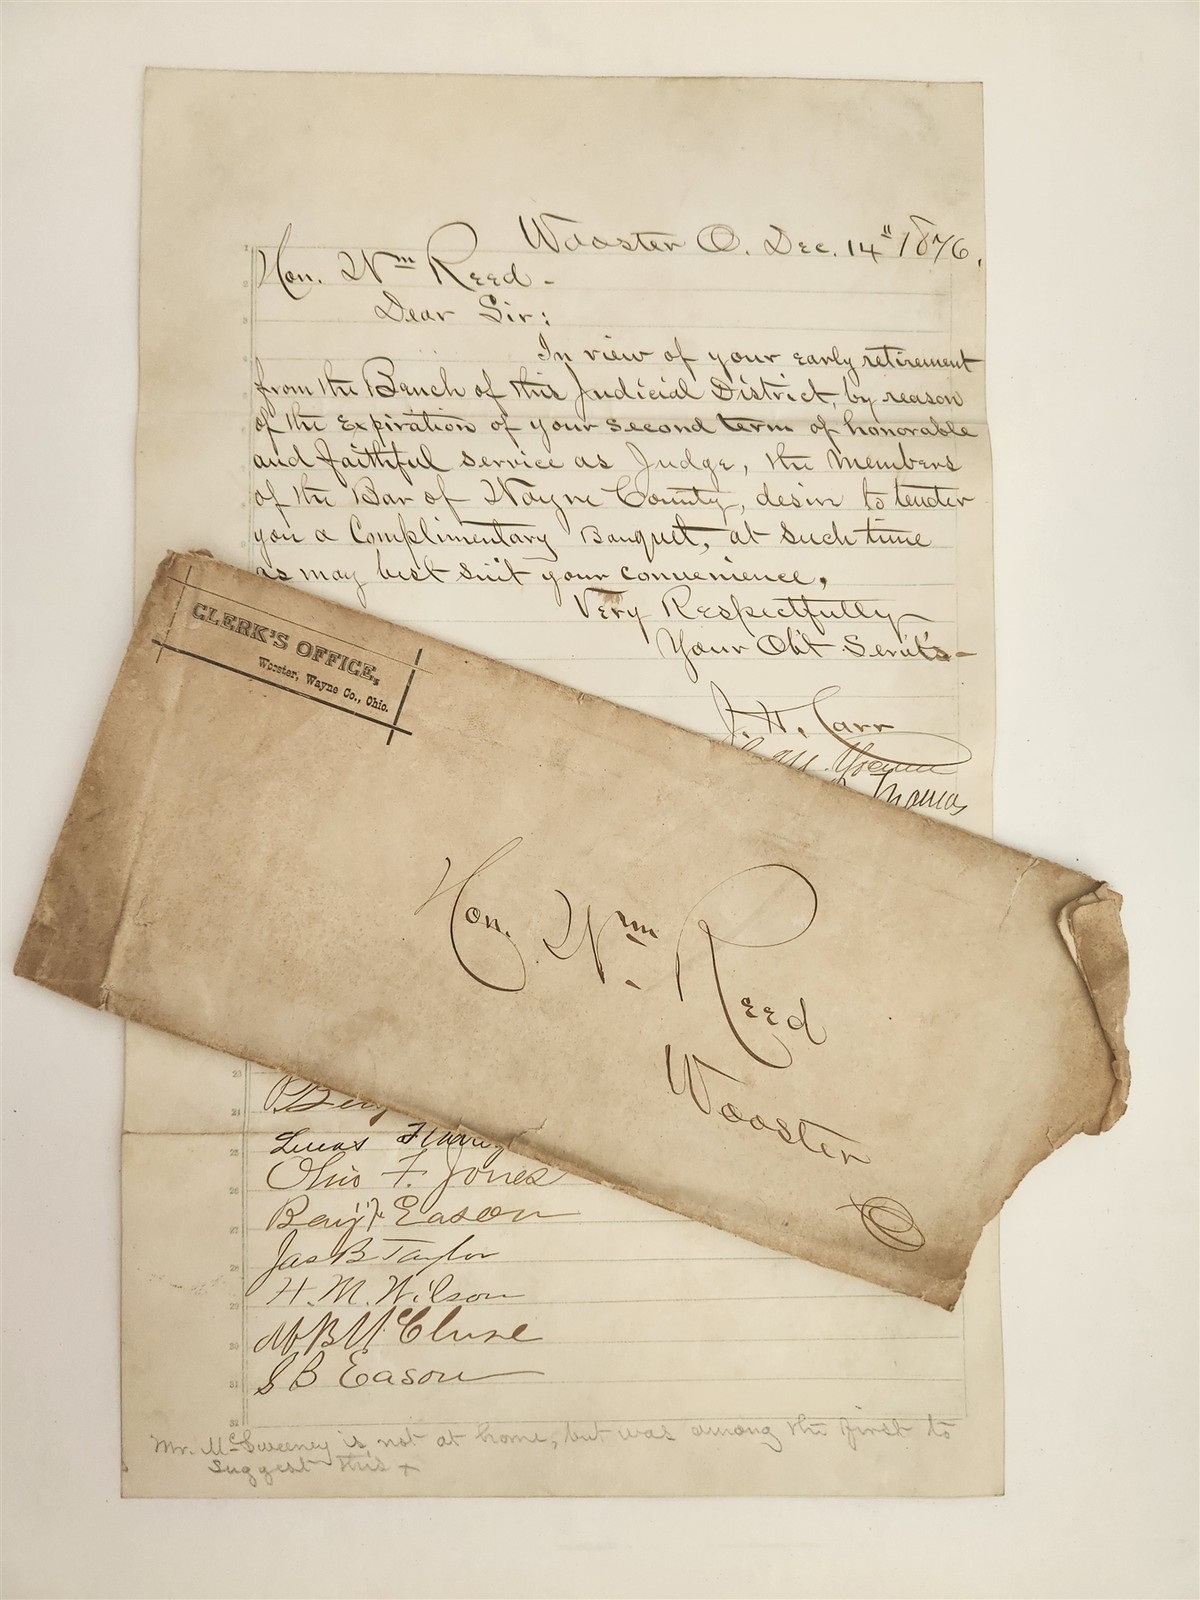 Wooster O. Dec. 14" 1876.
Hon. Wm Reed -
Dear Sir:
In view of your early retirement
from the Bench of this Judicial District, by reason
of the expiration of your second term of honorable
and faithful service as Judge, the members
of the Bar of Wayne County, desire to tender
you a Complimentary Banquet, at such time
as may best suit your convenience.
Very Respectfully
Your Obt Servts -
J. H. Carr
Thomas
CLERK'S OFFICE,
Wooster, Wayne Co., Ohio.
Hon. Wm Reed
Wooster
O
23
24
Lucas
25
Ohio F. Jones
26
Benj F Eason
27
Jas B Taylor
28
H. M. Wilson
29
McClure
30
S B Eason
31
32
Mr. McSweeney is not at home, but was among the first to
suggest this +